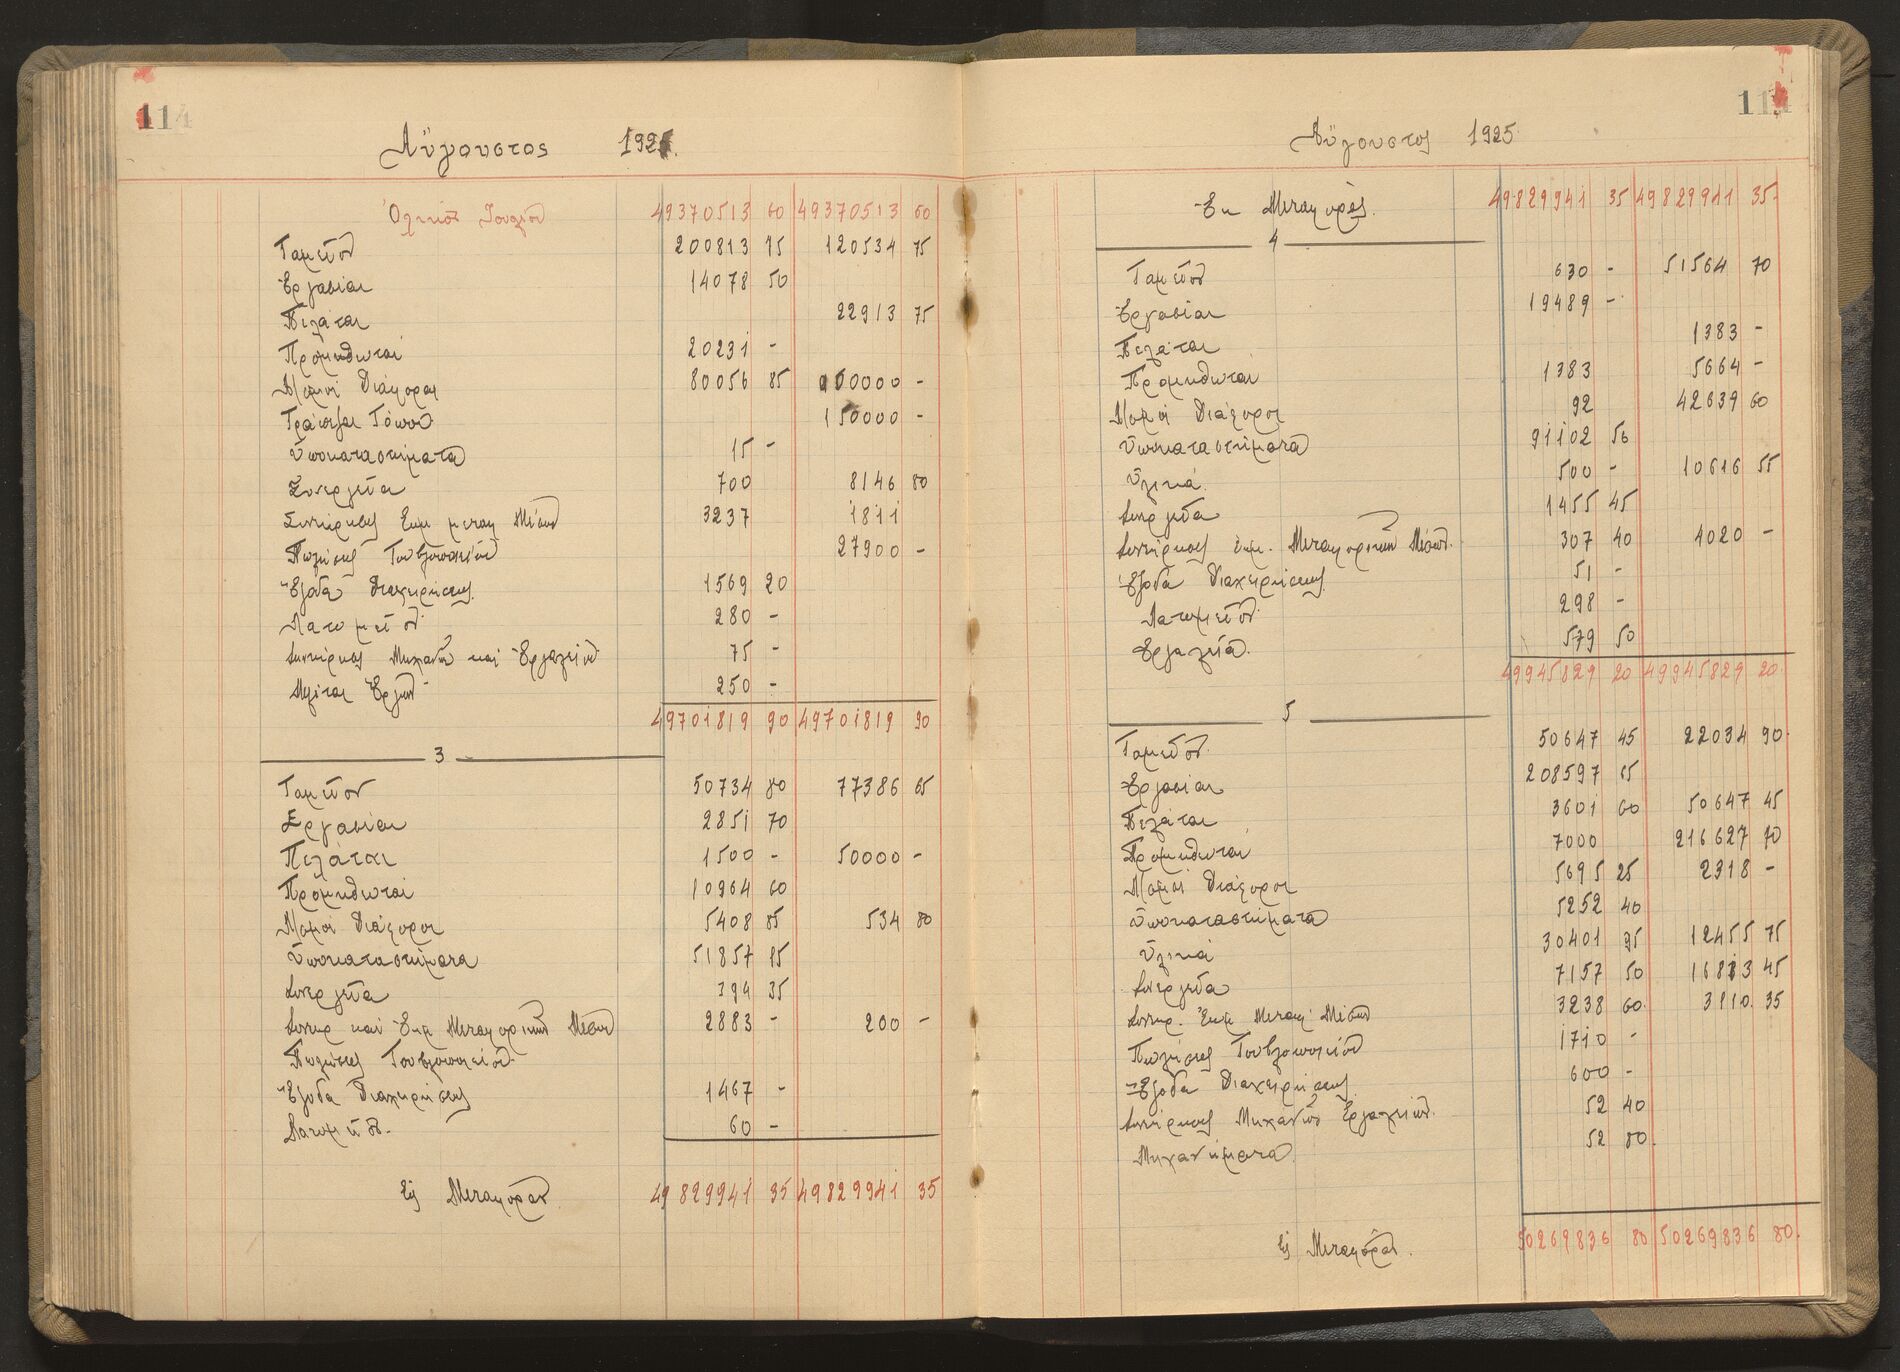 114
Αὔγουστος 1925.
Ὁλικὸν Ἰουλίου 49370513 60 49370513 60
Ταμεῖον 200813 75 120534 75
Ἐργασίαι 14078 50
Πελάται 22913 75
Προμηθευταί 20231 -
Λ/σμοί Διάφοροι 80056 85 -
Τράπεζαι 150000 -
Ὑποκαταστήματα 15 -
Συνεργεῖα 700 8146 80
Συντήρησις 3237 1811
Πωλήσεις Τουβλοποιείου 27900 -
Ἔξοδα Διαχειρίσεως 1569 20
Λατομεῖον 280 -
Συντήρησις Μηχανῶν καὶ Ἐργαλείων 75 -
250 -
49701819 90 49701819 90
3
Ταμεῖον 50734 80 77386 65
Ἐργασίαι 2851 70
Πελάται 1500 - 50000 -
Προμηθευταί 10964 60
Λ/σμοί Διάφοροι 5408 85 534 80
Ὑποκαταστήματα 51857 85
Συνεργεῖα 394 35
Συντηρ καὶ Ἐκμ Μεταφορικῶν Μέσων 2883 - 200 -
Πωλήσεις Τουβλοποιείου
Ἔξοδα Διαχειρίσεως 1467 -
Λατομεῖον 60 -
Εἰς Μεταφοράν 49829941 35 49829941 35
114
Αὔγουστος 1925
Ἐκ Μεταφορᾶς. 49829941 35 49829941 35
4
Ταμεῖον 630 - 51564 70
Ἐργασίαι 19489 -
Πελάται 1383 -
Προμηθευταί 1383 5664 -
Λ/σμοί Διάφοροι 92 42639 60
Ὑποκαταστήματα 91102 50
Ὑλικά 500 - 10616 55
Συνεργεῖα 1455 45
Συντήρησις Ἐκμ. Μεταφορικῶν Μέσων. 307 40 4020 -
Ἔξοδα Διαχειρίσεως 51 -
Λατομεῖον 298 -
Ἐργαλεῖα. 579 50
49945829 20 49945829 20
5
Ταμεῖον 50647 45 22034 90
Ἐργασίαι 208597 85
Πελάται 3601 60 50647 45
Προμηθευταί 7000 216627 70
Λ/σμοί Διάφοροι 5695 25 2318 -
Ὑποκαταστήματα 5252 40
Ὑλικά 30401 95 12455 75
Συνεργεῖα 7157 50 45
Συντηρ. Ἐκμ Μεταφ. Μέσων 3238 60 3110 35
Πωλήσεις Τουβλοποιείου 1710 -
Ἔξοδα Διαχειρίσεως 600 -
Συντήρησις Μηχανῶν Ἐργαλείων. 52 40
Μηχανήματα 52 80
Εἰς Μεταφοράν. 50269836 80 50269836 80